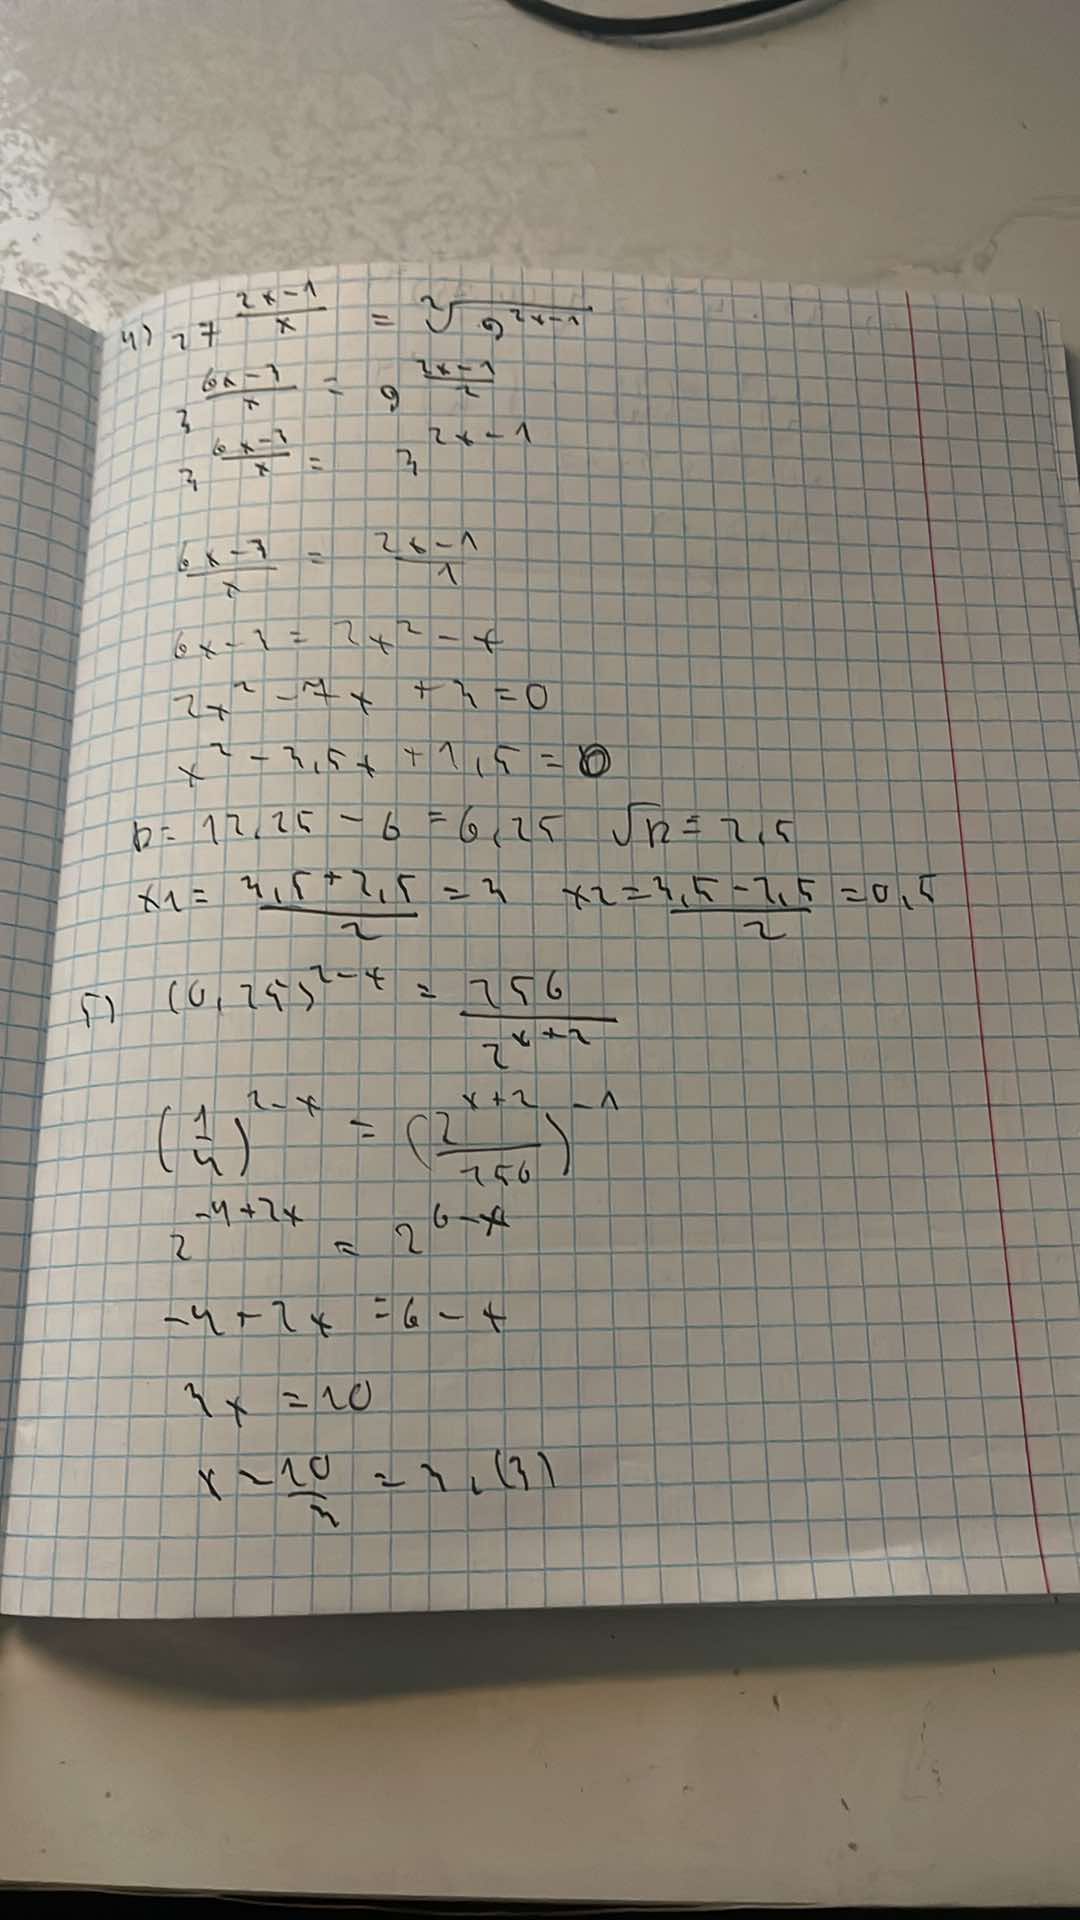 4) 27^{\frac{2x-1}{x}} = \sqrt[2]{9^{2x-1}}
3^{\frac{6x-3}{x}} = 9^{\frac{2x-1}{2}}
3^{\frac{6x-3}{x}} = 3^{2x-1}
\frac{6x-3}{x} = \frac{2x-1}{1}
6x-3 = 2x^2 - x
2x^2 - 7x + 3 = 0
x^2 - 3,5x + 1,5 = 0
D = 12,25 - 6 = 6,25 \sqrt{D} = 2,5
x1 = \frac{3,5+2,5}{2} = 3 x2 = \frac{3,5-2,5}{2} = 0,5
5) (0,25)^{2-x} = \frac{256}{2^{x+2}}
(\frac{1}{4})^{2-x} = (\frac{2^{x+2}}{256})^{-1}
2^{-4+2x} = 2^{6-x}
-4+2x = 6-x
3x = 10
x = \frac{10}{3} = 3,(3)